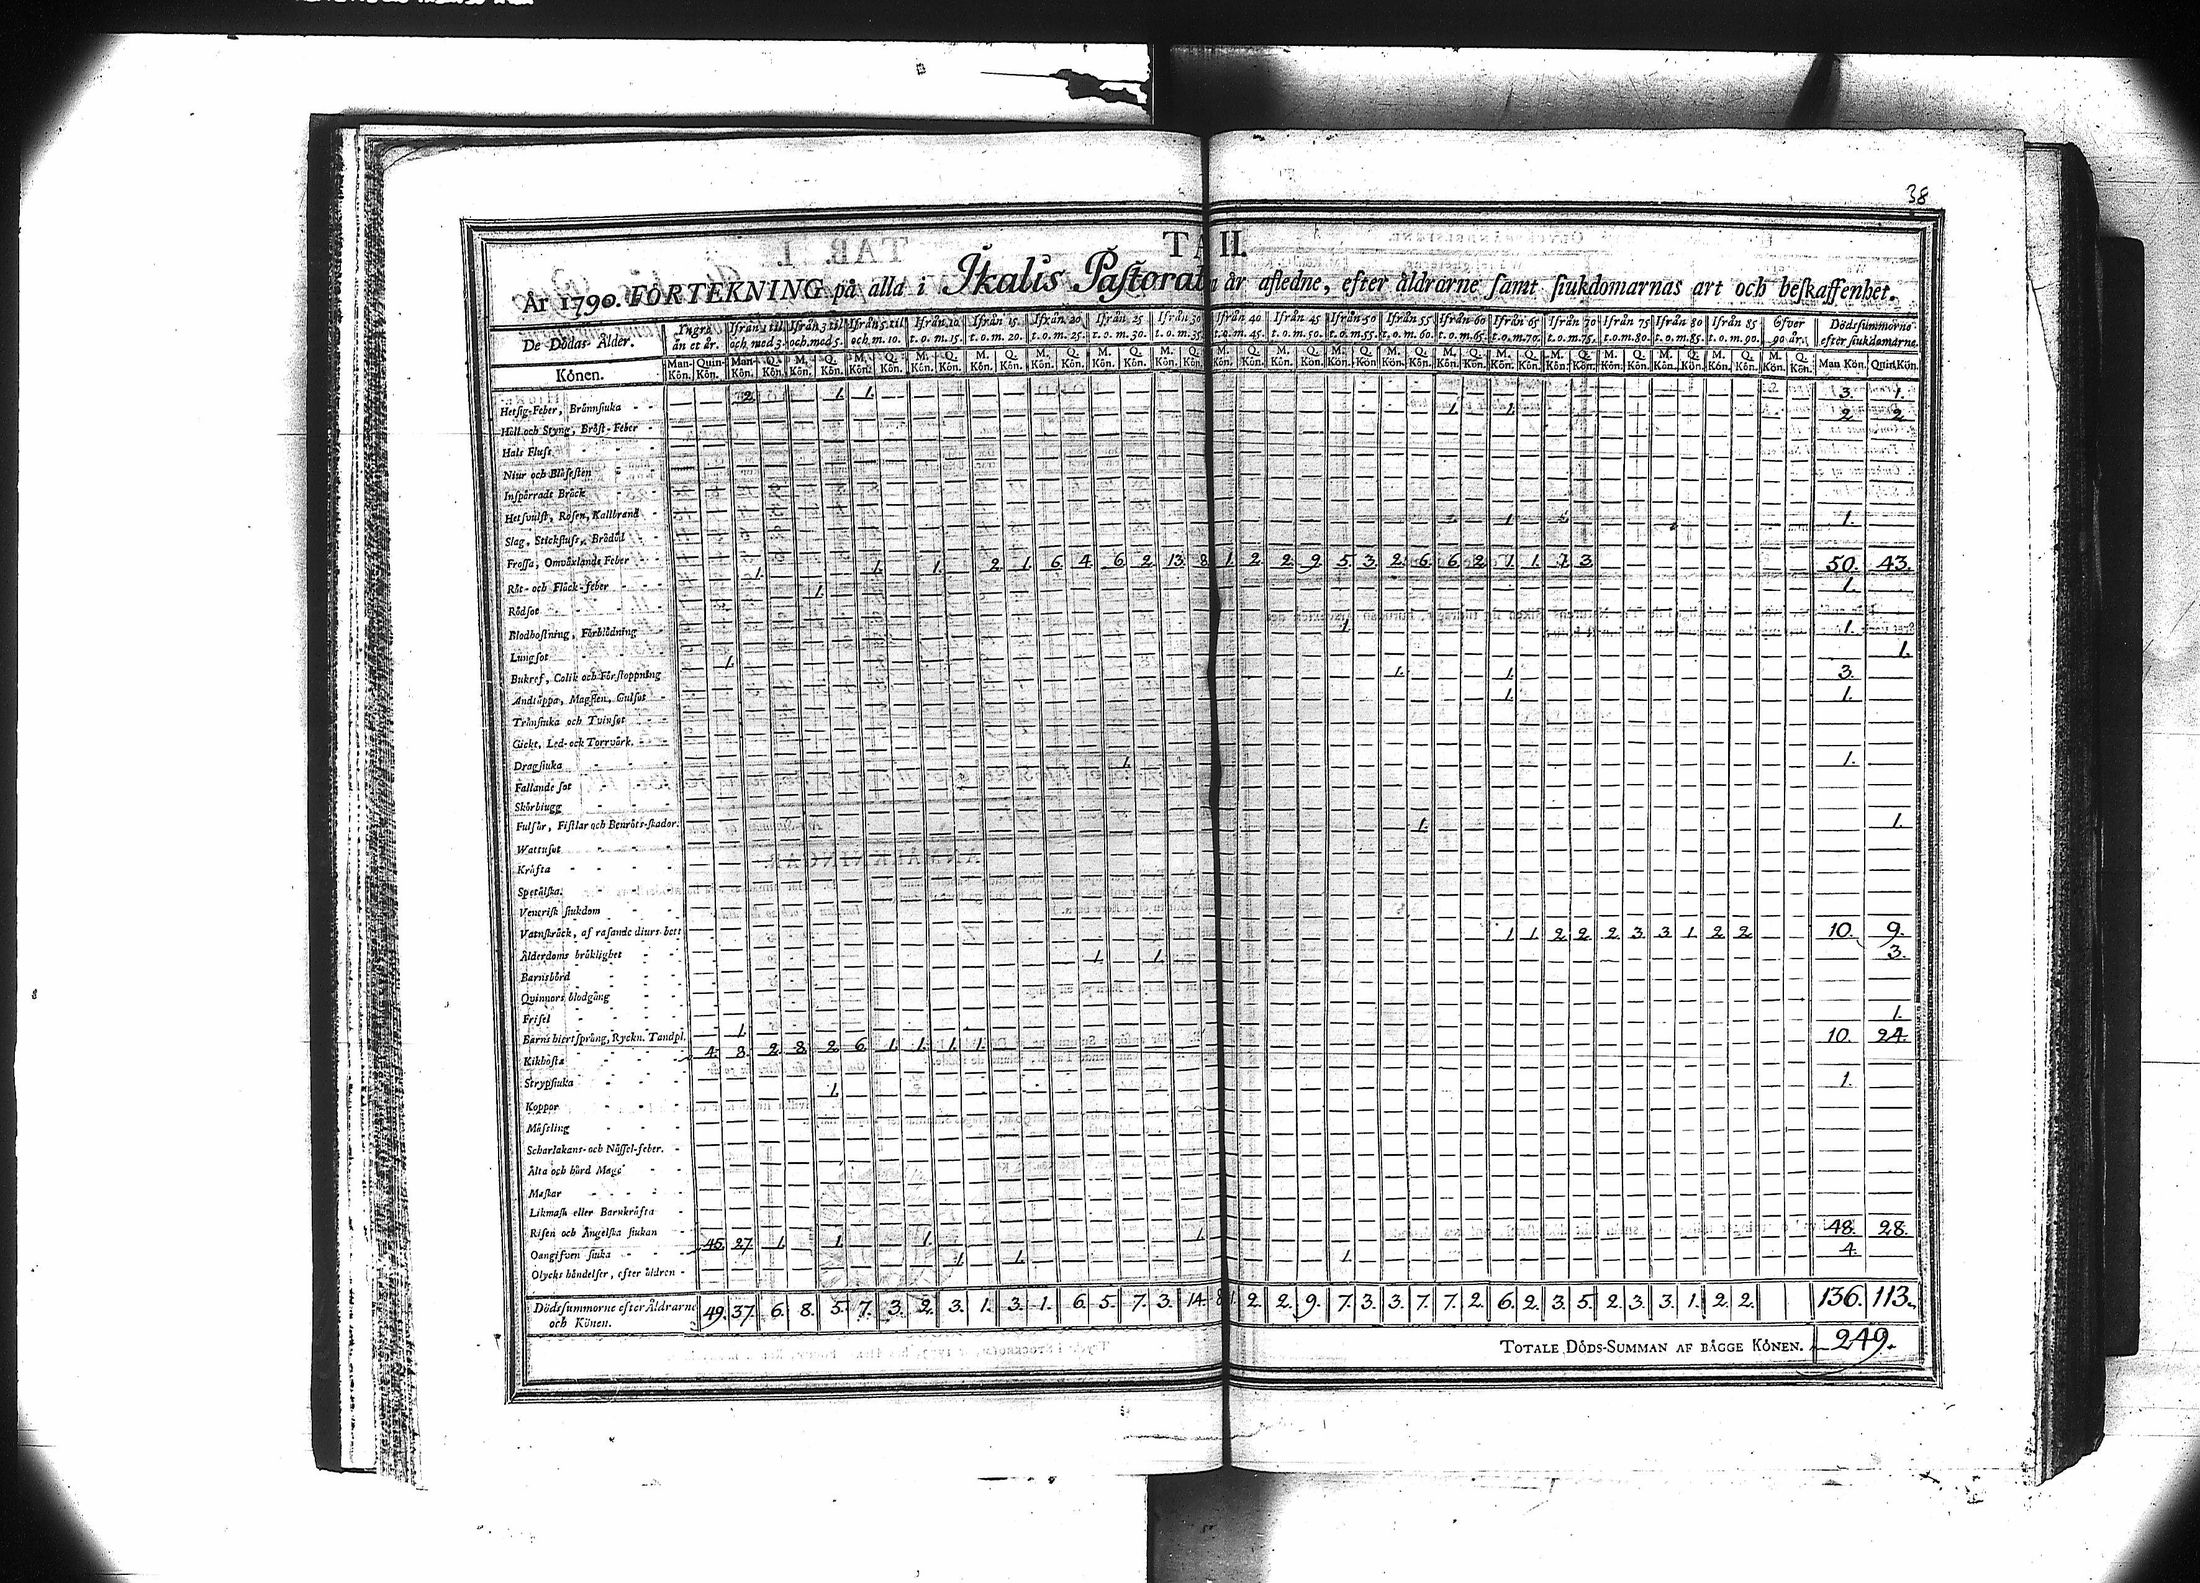 38
TA II.
År 1790. FÖRTEKNING på alla i Ikalis Pastorat år afledne, efter åldrarne samt siukdomarnas art och beskaffenhet.
De Dödas Ålder. Yngre än et år. Ifrån 1 til och med 3. Ifrån 3 til och med 5. Ifrån 5 til och m. 10. Ifrån 10 t.o.m. 15. Ifrån 15 t.o.m. 20. Ifrån 20 t.o.m. 25. Ifrån 25 t.o.m. 30. Ifrån 30 t.o.m. 35. Ifrån 40 t.o.m. 45. Ifrån 45 t.o.m. 50. Ifrån 50 t.o.m. 55. Ifrån 55 t.o.m. 60. Ifrån 60 t.o.m. 65. Ifrån 65 t.o.m. 70. Ifrån 70 t.o.m. 75. Ifrån 75 t.o.m. 80. Ifrån 80 t.o.m. 85. Ifrån 85 t.o.m. 90. Öfver 90 år. Dödssummorne efter siukdomarne.
Könen. Man-Kön. Quin-Kön. Man-Kön. Q. Kön. M. Kön. Q. Kön. M. Kön. Q. Kön. M. Kön. Q. Kön. M. Kön. Q. Kön. M. Kön. Q. Kön. M. Kön. Q. Kön. M. Kön. Q. Kön. M. Kön. Q. Kön. M. Kön. Q. Kön. M. Kön. Q. Kön. M. Kön. Q. Kön. M. Kön. Q. Kön. M. Kön. Q. Kön. M. Kön. Q. Kön. M. Kön. Q. Kön. M. Kön. Q. Kön. M. Kön. Q. Kön. M. Kön. Q. Kön. Man Kön. Quin. Kön.
Hetsig-Feber, Brännsiuka 2. 1. 1. 3. 1.
Håll och Styng, Bröst-Feber 1. 1. 2. 2.
Hals Fluss
Niur och Blåsesten
Inspärradt Bråck
Hetsvulst, Rosen, Kallbrand
Slag, Stickfluss, Brådöd 1. 1.
Frossa, Omväxlande Feber
Röt- och Fläck-feber 1. 1. 1. 2. 1. 6. 4. 6. 2. 13. 8. 1. 2. 2. 9. 5. 3. 2. 6. 6. 2. 1. 1. 1. 3. 50. 43.
Rödsot 1. 1.
Blodhostning, Förblödning
Lungsot 1. 1.
Bukref, Colik och Förstoppning 1. 1.
Andtäppa, Magsten, Gulsot 1. 1. 3.
Trånsiuka och Tvinsot 1. 1.
Gickt, Led- och Torrvärk.
Dragsiuka
Fallande sot 1. 1.
Skörbiugg
Fulsår, Fistlar och Benröts-skador.
Wattusot 1. 1.
Kräfta
Spetälska.
Venerisk siukdom
Vatnskräck, af rasande diurs bett
Ålderdoms bräklighet 1. 1. 2. 2. 2. 3. 3. 1. 2. 2. 10. 9.
Barnsbörd 1. 1. 3.
Qvinnors blodgång
Frisel
Barns hiertsprång, Ryckn. Tandpl. 1. 1.
Kikhosta 4. 8. 2. 8. 2. 6. 1. 1. 1. 1. 10. 24.
Strypsiuka
Koppor 1. 1.
Mässling
Scharlakans- och Nässel-feber.
Älta och hård Mage
Maskar
Likmask eller Barnkräfta
Risen och Ängelska siukan
Oangifven siuka 45. 27. 1. 1. 1. 1. 48. 28.
Olycks händelser, efter åldren 1. 1. 1. 4.
Dödssummorne efter Åldrarne och Könen. 49. 37. 6. 8. 5. 7. 3. 2. 3. 1. 3. 1. 6. 5. 7. 3. 14. 8. 1. 2. 2. 9. 7. 3. 3. 7. 7. 2. 6. 2. 3. 5. 2. 3. 3. 1. 2. 2. 136. 113.
TOTALE DÖDS-SUMMAN AF BÄGGE KÖNEN. 249.